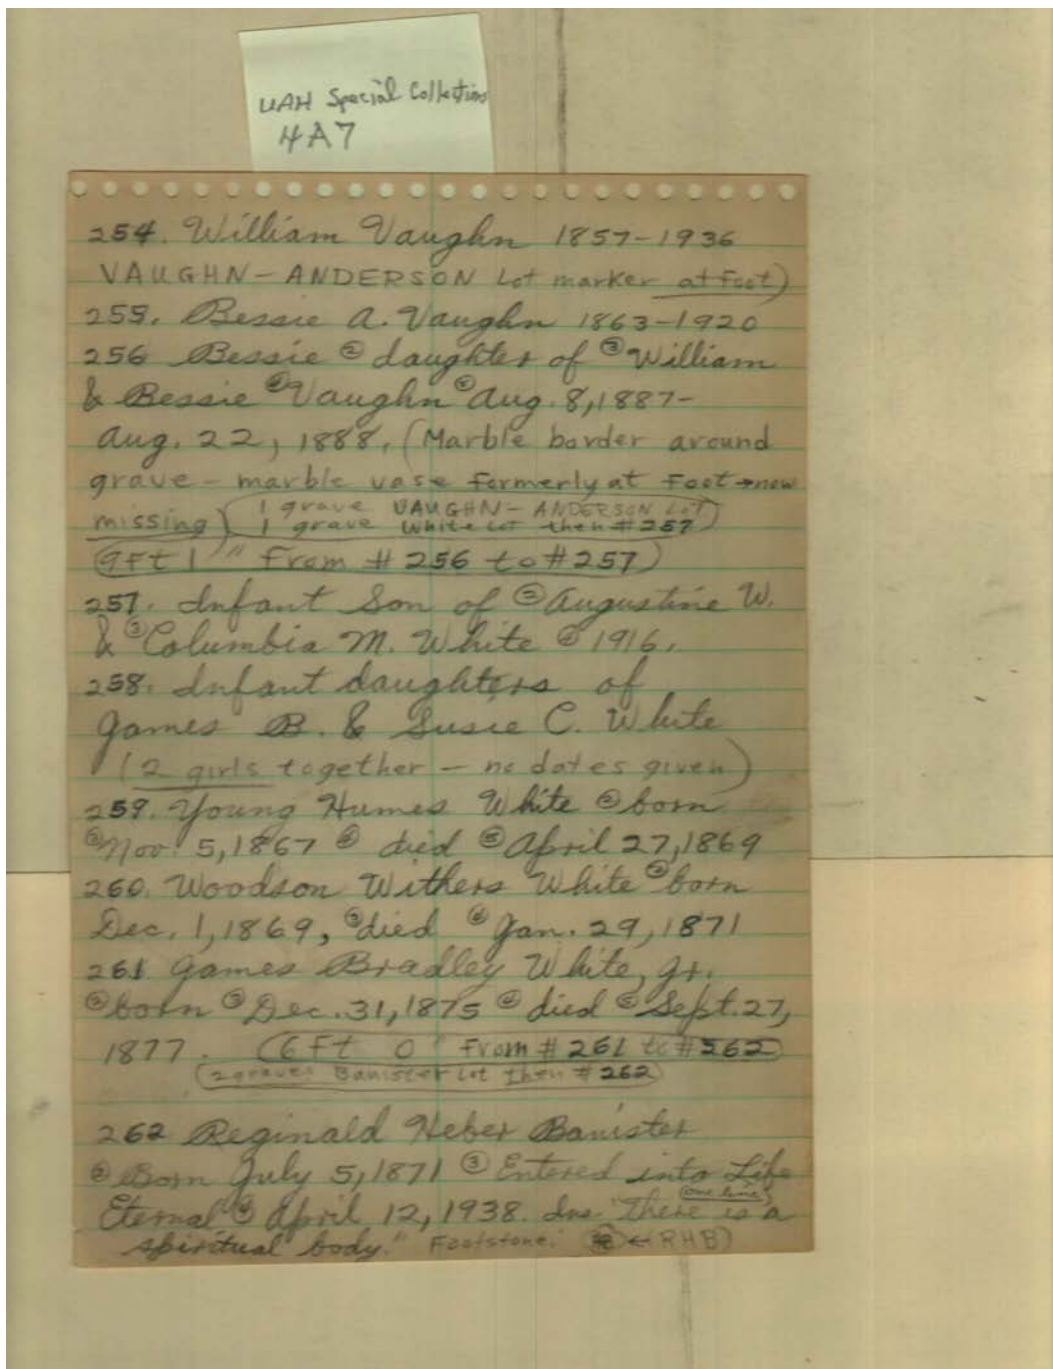 UAH Special Collections
4A7
254. William Vaughn 1857-1936
VAUGHN-ANDERSON Lot marker at foot)
255. Bessie A. Vaughn 1863-1920
256 Bessie ② daughter of ③ William
& Bessie ④ Vaughn ⑤ Aug. 8, 1887-
Aug. 22, 1888. (Marble border around
grave - marble vase formerly at Foot → now
missing) (1 grave VAUGHN-ANDERSON Lot
1 grave White Lot then #257)
(9Ft 1" From #256 to #257)
257. Infant Son of ② Augustine W.
& ③ Columbia M. White ④ 1916.
258. Infant daughters of
James B. & Susie C. White
(2 girls together - no dates given)
259. Young Humes White ② born
③ Nov. 5, 1867 ④ died ⑤ April 27, 1869
260. Woodson Withers White ② born
Dec. 1, 1869, ③ died ④ Jan. 29, 1871
261 James Bradley White, Jr.
② born ③ Dec. 31, 1875 ④ died ⑤ Sept. 27,
1877. (6Ft 0" From #261 to #262)
(2 graves Banister Lot then #262)
262 Reginald Heber Banister
② Born July 5, 1871 ③ Entered into Life
Eternal ④ April 12, 1938. Ins. "There is a
(one line)
spiritual body." Footstone: ← (RHB)